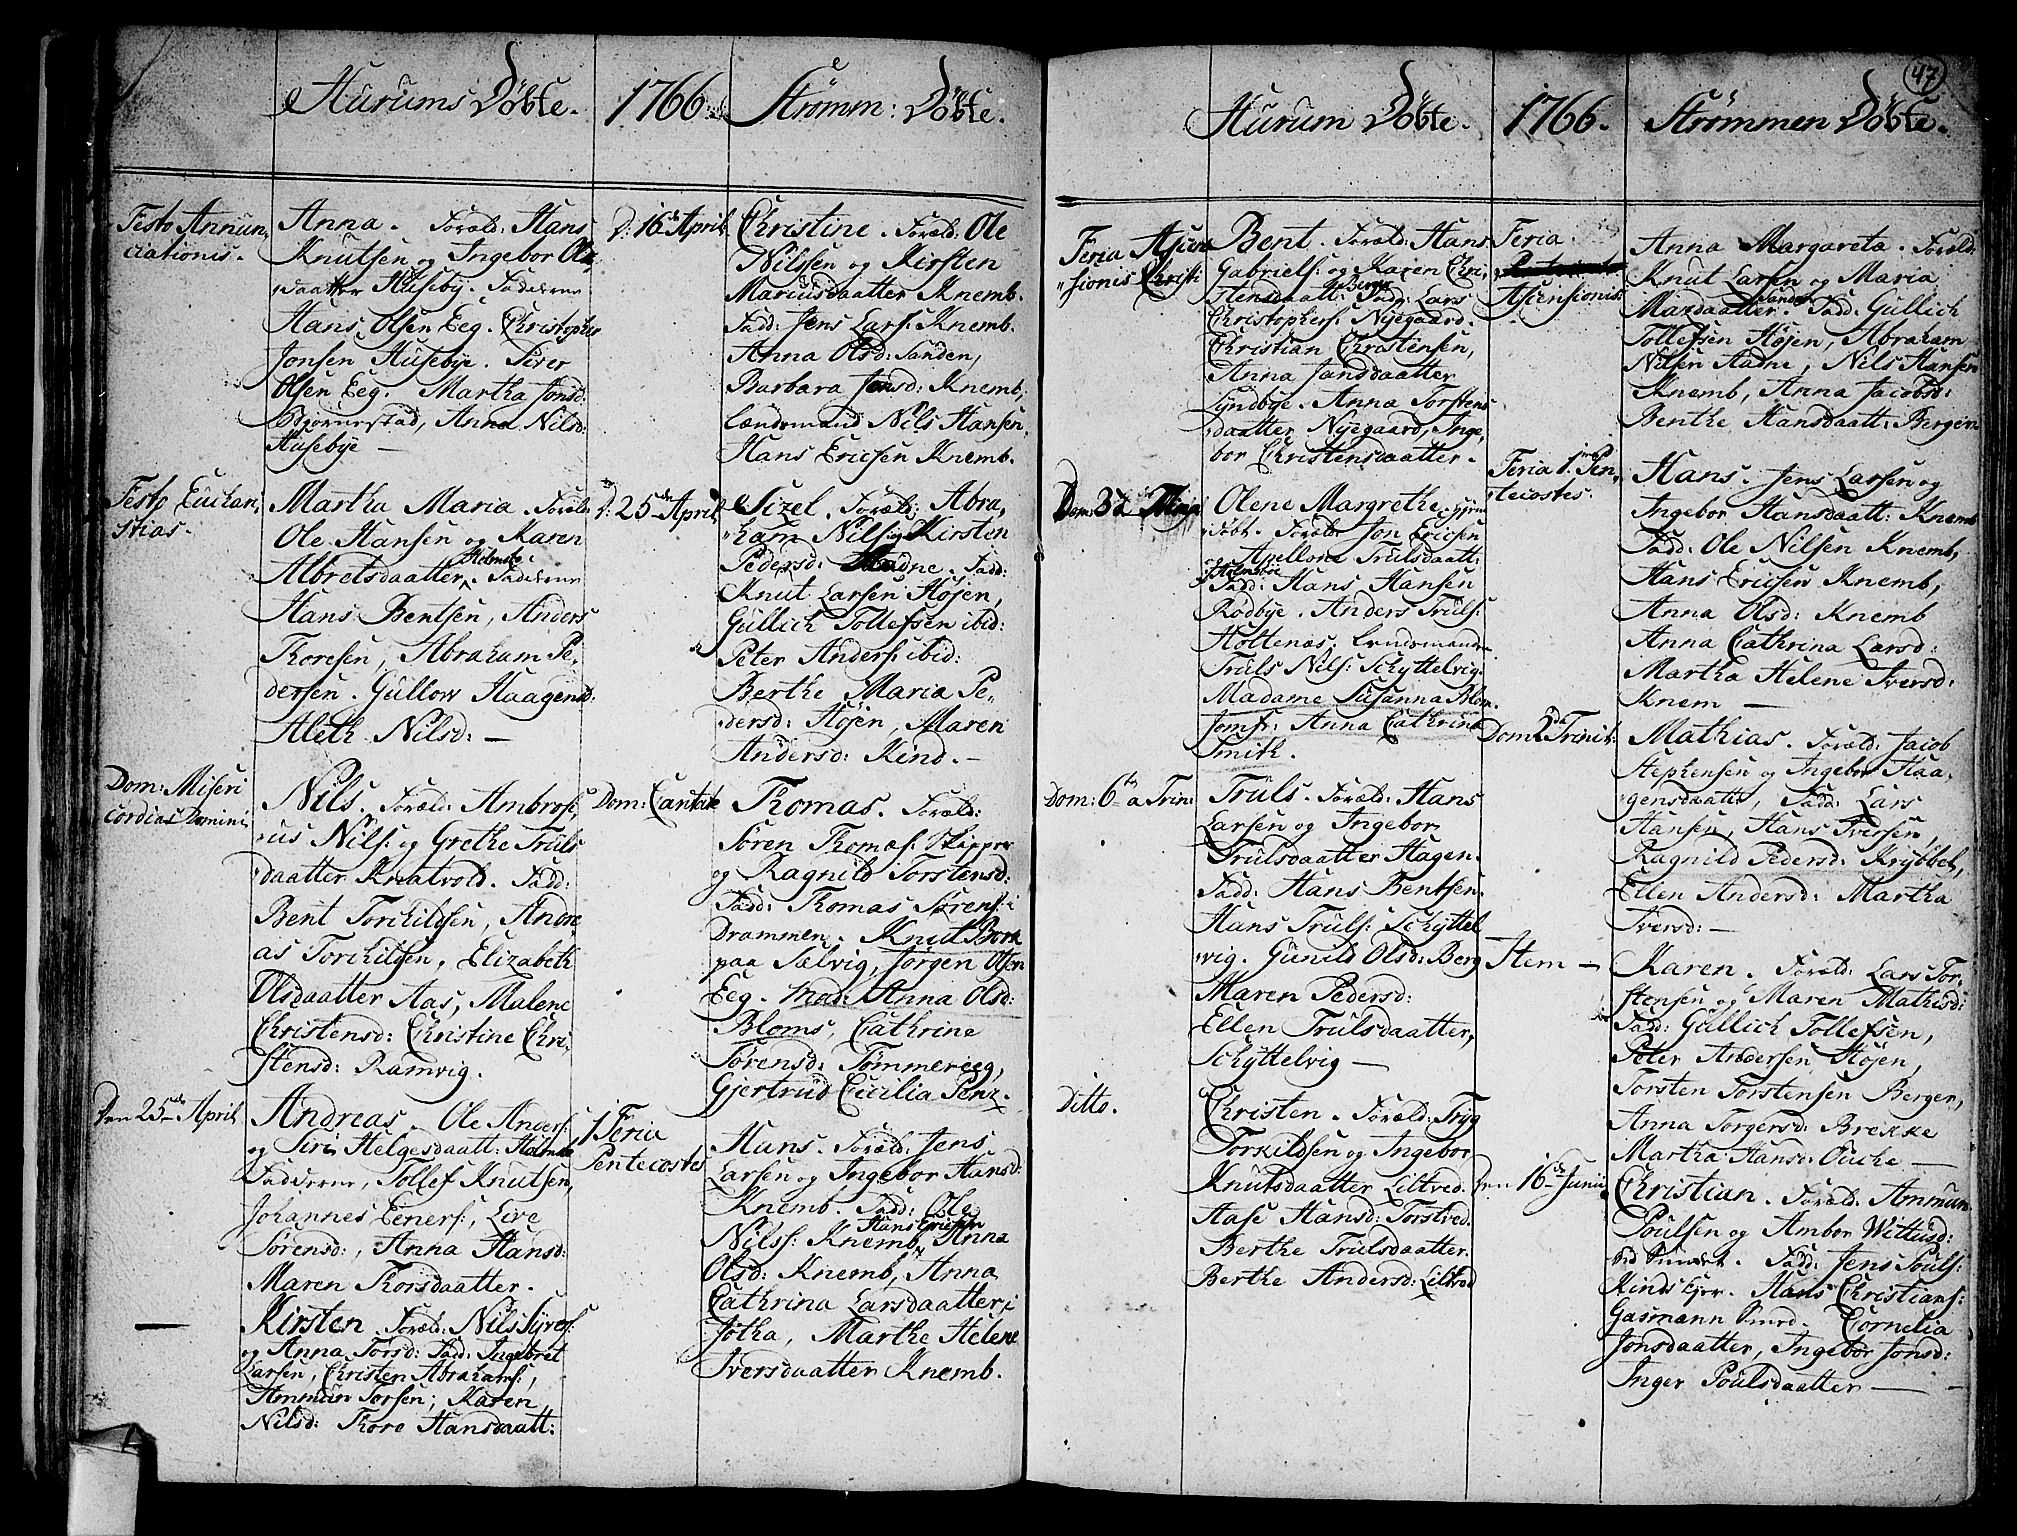 Hurums Döbte.
1766.
Strømm: Döbte.
Festo Annun,
ciationis.
Anna. Foræld: Hans
Knutsen og Ingebor Ols,
daatter Huseby. Fadderne
Hans Olsen Eeg. Christopher
Jonsen Husebye. Siver
Olsen Eeg. Martha Jonsd:
Bjørnestad, Anna Nilsd:
Husebye —
Festo Euchari
stias.
Martha Maria. Foræld:
Ole Hansen og Karen
Albretsdaatter Holmsbo. Fadderne
Hans Bentsen, Anders
Thoresen, Abraham Pe,
dersen. Gullow Haagensd:
Aleth Nilsd: —
Dom: Miseri
cordias Domini
Nils. Foræld: Ambrosi,
us Nils: og Grethe Truls
daatter Knatvold. Fadd:
Bent Torchildsen, Andre
as Torchilsen, Elizabeth
Olsdaatter Aas, Malene
Christensd: Christine Chri,
stensd: Ramvig.
Den 25de April
Andreas. Ole Anders:
og Siri Helgesdaatt: Holmsbo
Fadderne, Tollef Knutsen,
Johannes Eeners:, Live
Sørensd:, Anna Hansd:
Maren Thorsdaatter.
—
Kirsten. Foræld: Nils Syvers:
og Anna Torsd: Fad: Ingebret
Larsen, Christen Abrahams:,
Ammun Torsen; Karen
Nilsd: Thore Hansdaatt:
D: 16de April
Christine. Foræld: Ole
Nilssen og Kirsten
Mariusdaatter Knemb.
Fadd: Jens Lars: Knemb.
Anna Olsd: Sanden,
Barbara Jensd: Knemb;
Lændsmand Nils Hansen
Hans Ericsen Knemb.
D: 25de April
Sizel. Foræld: Abra,
ham Nils: og Kirsten
Pedersd: Aadne. Fadd:
Knut Larsen Højen,
Gullich Tollefsen ibid:
Peter Anders: ibid:
Berthe Maria Pe,
dersd: Højen, Maren
Andersd: Kind. —
Dom: Cantate
Thomas. Foræld:
Søren Thomas: Skipper
og Ragnild Torstensd:
Fadd: Thomas Sørens: i
Drammen. Knut Bork
paa Sælvig, Jørgen Olsen
Eeg. Mad: Anna Olsd:
Bloms, Cathrine
Sørensd: Tømmereeg,
Gjertrud Cicilia Penz.
1 Feria
Pentecostes
Hans. Foræld: Jens
Larsen og Ingebor Hansd:
Knemb. Fadd: Ole
Nilss: Knemb, Hans Ericsen Anna
Olsd: Knemb, Anna
Cathrina Larsdaatter i
Jotha, Marthe Helene
Iversdaatter Knemb.
47
Hurum Döbte.
1766.
Strömmen Döbte.
Feria Ascen
sionis Christi
Bent. Foræld: Hans
Gabriels: og Karen Chri,
stensdaatt: Berge Fadd: Lars
Christophers: Nyegaard.
Christian Christensen,
Anna Jansdaatter
Lyndbye. Anna Torstens
daatter Nyegaard, Inge,
bor Christensdaatter.
Dom: 3de
Olene Margrethe. Hjem
døbt. Foræld: Jon Ericsen
og Apellone Trulsdaatt:
Holmsboe Fadd: Hans Hansen
Rødbye. Anders Truls:
Holtenæs. Lendsmand
Truls Nils: Schyttelvig.
Madame Susanna Blom.
Jomf: Anna Cathrina
Smith.
Dom: 6ta Trin:
Truls. Foræld: Hans
Larsen og Ingebor
Trulsdaatter Hagen.
Fadd: Hans Bentsen.
Hans Truls: Schyttel
vig. Gunild Olsd: Berg
Maren Pedersd:
Ellen Trulsdaatter,
Schyttelvig —
Ditto.
Christen. Foræld: Tryg
Torkildsen og Ingebor
Knutsdaatter Liltved.
Aase Hansd: Torstved.
Berthe Trulsdaatter.
Berthe Andersd: Liltved
Feria
Ascensionis
Anna Margareta. Foræld:
Knut Larsen og Maria
Marsdaatter. Sanden Fadd: Gullich
Tollefsen Højen, Abraham
Nilsen Aadne, Nils Hansen
Knemb, Anna Jacobsd:
Benthe Hansdaatt: Bergen
Feria 1ma Pen,
tecostes.
Hans. Jens Larsen og
Ingebor Hansdaatt: Knemb
Fadd: Ole Nilsen Knemb,
Hans Ericsen Knemb,
Anna Olsd: Knemb
Anna Cathrina Larsd:
Martha Helene Iversd:
Knem —
Dom 2da Trinit:
Mathias. Foræld: Jacob
Stephensen og Ingebor Haa,
gensdaatt:, Fadd: Lars
Hansen, Hans Iversen,
Ragnild Pedersd: Krybbel,
Ellen Andersd: Martha
Iversd: —
Item —
Karen. Foræld: Lars Tor,
stensen og Maren Mathisd:
Fadd: Gullich Tollefsen,
Peter Andersen Højen,
Torsten Torstensen Bergen,
Anna Torgersd: Brekke
Martha Hansd: Ouche —
Den 16de Junii
Christian. Foræld: Ammun
Poulsen og Ambor Wittusd:
ved Svindet. Fadd: Jens Pouls:
Kinds Ejer. Hans Christians:
Gasmann Svird. Cornelia
Jonsdaatter, Ingebor Jonsd:
Inger Poulsdaatter —